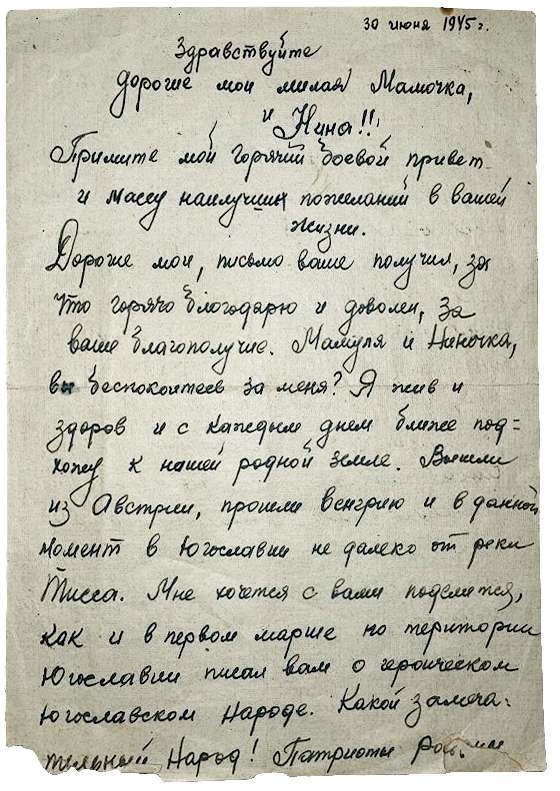 30 июня 1945 г.
Здравствуйте
дорогие мои милая Мамочка,
и Нина!!
Примите мой горячий боевой привет
и массу наилучших пожеланий в вашей
жизни.
Дорогие мои, письмо ваше получил, за
что горячо благодарю и доволен, за
ваше благополучие. Мамуля и Ниночка,
вы беспокоитесь за меня? Я жив и
здоров и с каждым днем ближе под=
хожу к нашей родной земле. Вышли
из Австрии, прошли венгрию и в данной
момент в Югославии не далеко от реки
Тисса. Мне хочется с вами поделится,
как и в первом марше по територии
Югославии писал вам о героическом
югославском народе. Какой замеча-
тельный народ! Патриоты